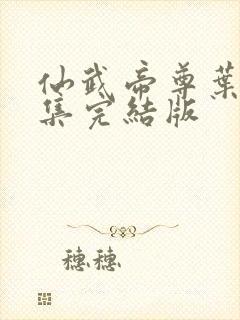 仙武帝尊葉
集完結版
穗穗